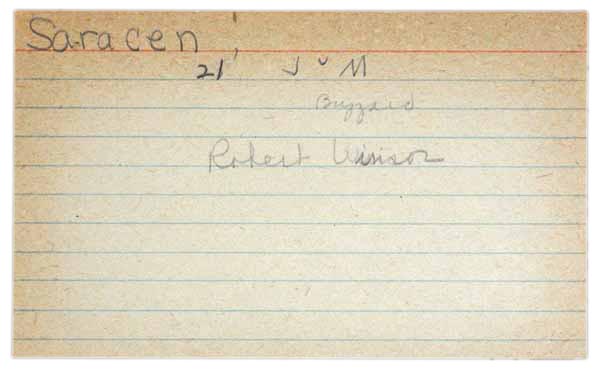 Saracen
21' J M
Buzzard
Robert Winsor